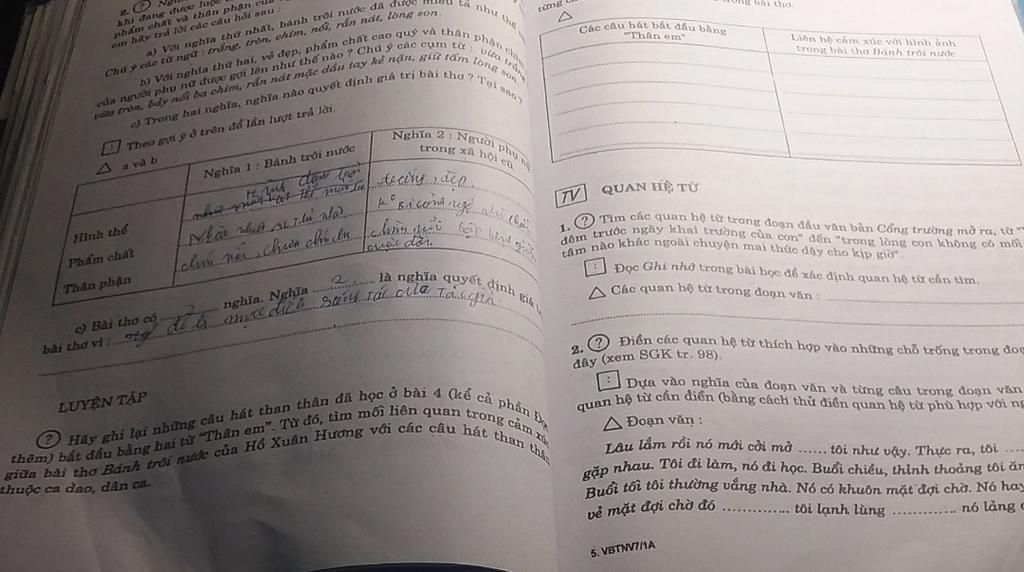 2. ?
khi đang được luộc
phẩm chất và thân phận của
em hãy trả lời các câu hỏi sau :
a) Với nghĩa thứ nhất, bánh trôi nước đã được miêu tả như thế
Chú ý các từ ngữ : trắng, tròn, chìm, nổi, rắn nát, lòng son.
b) Với nghĩa thứ hai, vẻ đẹp, phẩm chất cao quý và thân phận
của người phụ nữ được gợi lên như thế nào ? Chú ý các cụm từ : vừa trắng
vừa tròn, bảy nổi ba chìm, rắn nát mặc dầu tay kẻ nặn, giữ tấm lòng son
c) Trong hai nghĩa, nghĩa nào quyết định giá trị bài thơ ? Tại sao ?
: Theo gợi ý ở trên để lần lượt trả lời.
△ a và b
Nghĩa 1 : Bánh trôi nước
Nghĩa 2 : Người phụ nữ
trong xã hội cũ
Hình thể
trắng, đẹp
Phẩm chất
Thân phận
chìm nổi
cuộc đời
c) Bài thơ có 2 nghĩa. Nghĩa 2 là nghĩa quyết định giá
bài thơ vì : đó là mục đích sáng tác của tác giả
LUYỆN TẬP
? Hãy ghi lại những câu hát than thân đã học ở bài 4 (kể cả phần Đọc
thêm) bắt đầu bằng hai từ "Thân em". Từ đó, tìm mối liên quan trong cảm xúc
giữa bài thơ Bánh trôi nước của Hồ Xuân Hương với các câu hát than thân
thuộc ca dao, dân ca.
trong bài thơ.
△
Các câu hát bắt đầu bằng
"Thân em"
Liên hệ cảm xúc với hình ảnh
trong bài thơ Bánh trôi nước
TV QUAN HỆ TỪ
1. ? Tìm các quan hệ từ trong đoạn đầu văn bản Cổng trường mở ra, từ
đêm trước ngày khai trường của con" đến "trong lòng con không có mối
tâm nào khác ngoài chuyện mai thức dậy cho kịp giờ".
: Đọc Ghi nhớ trong bài học để xác định quan hệ từ cần tìm.
△ Các quan hệ từ trong đoạn văn :
2. ? Điền các quan hệ từ thích hợp vào những chỗ trống trong đoạn
đây (xem SGK tr. 98).
: Dựa vào nghĩa của đoạn văn và từng câu trong đoạn văn
quan hệ từ cần điền (bằng cách thử điền quan hệ từ phù hợp với
△ Đoạn văn :
Lâu lắm rồi nó mới cởi mở ...... tôi như vậy. Thực ra, tôi ....
gặp nhau. Tôi đi làm, nó đi học. Buổi chiều, thỉnh thoảng tôi ăn
Buổi tối tôi thường vắng nhà. Nó có khuôn mặt đợi chờ. Nó hay
vẻ mặt đợi chờ đó .............. tôi lạnh lùng ............. nó lảng
5. VBTNV7/1A